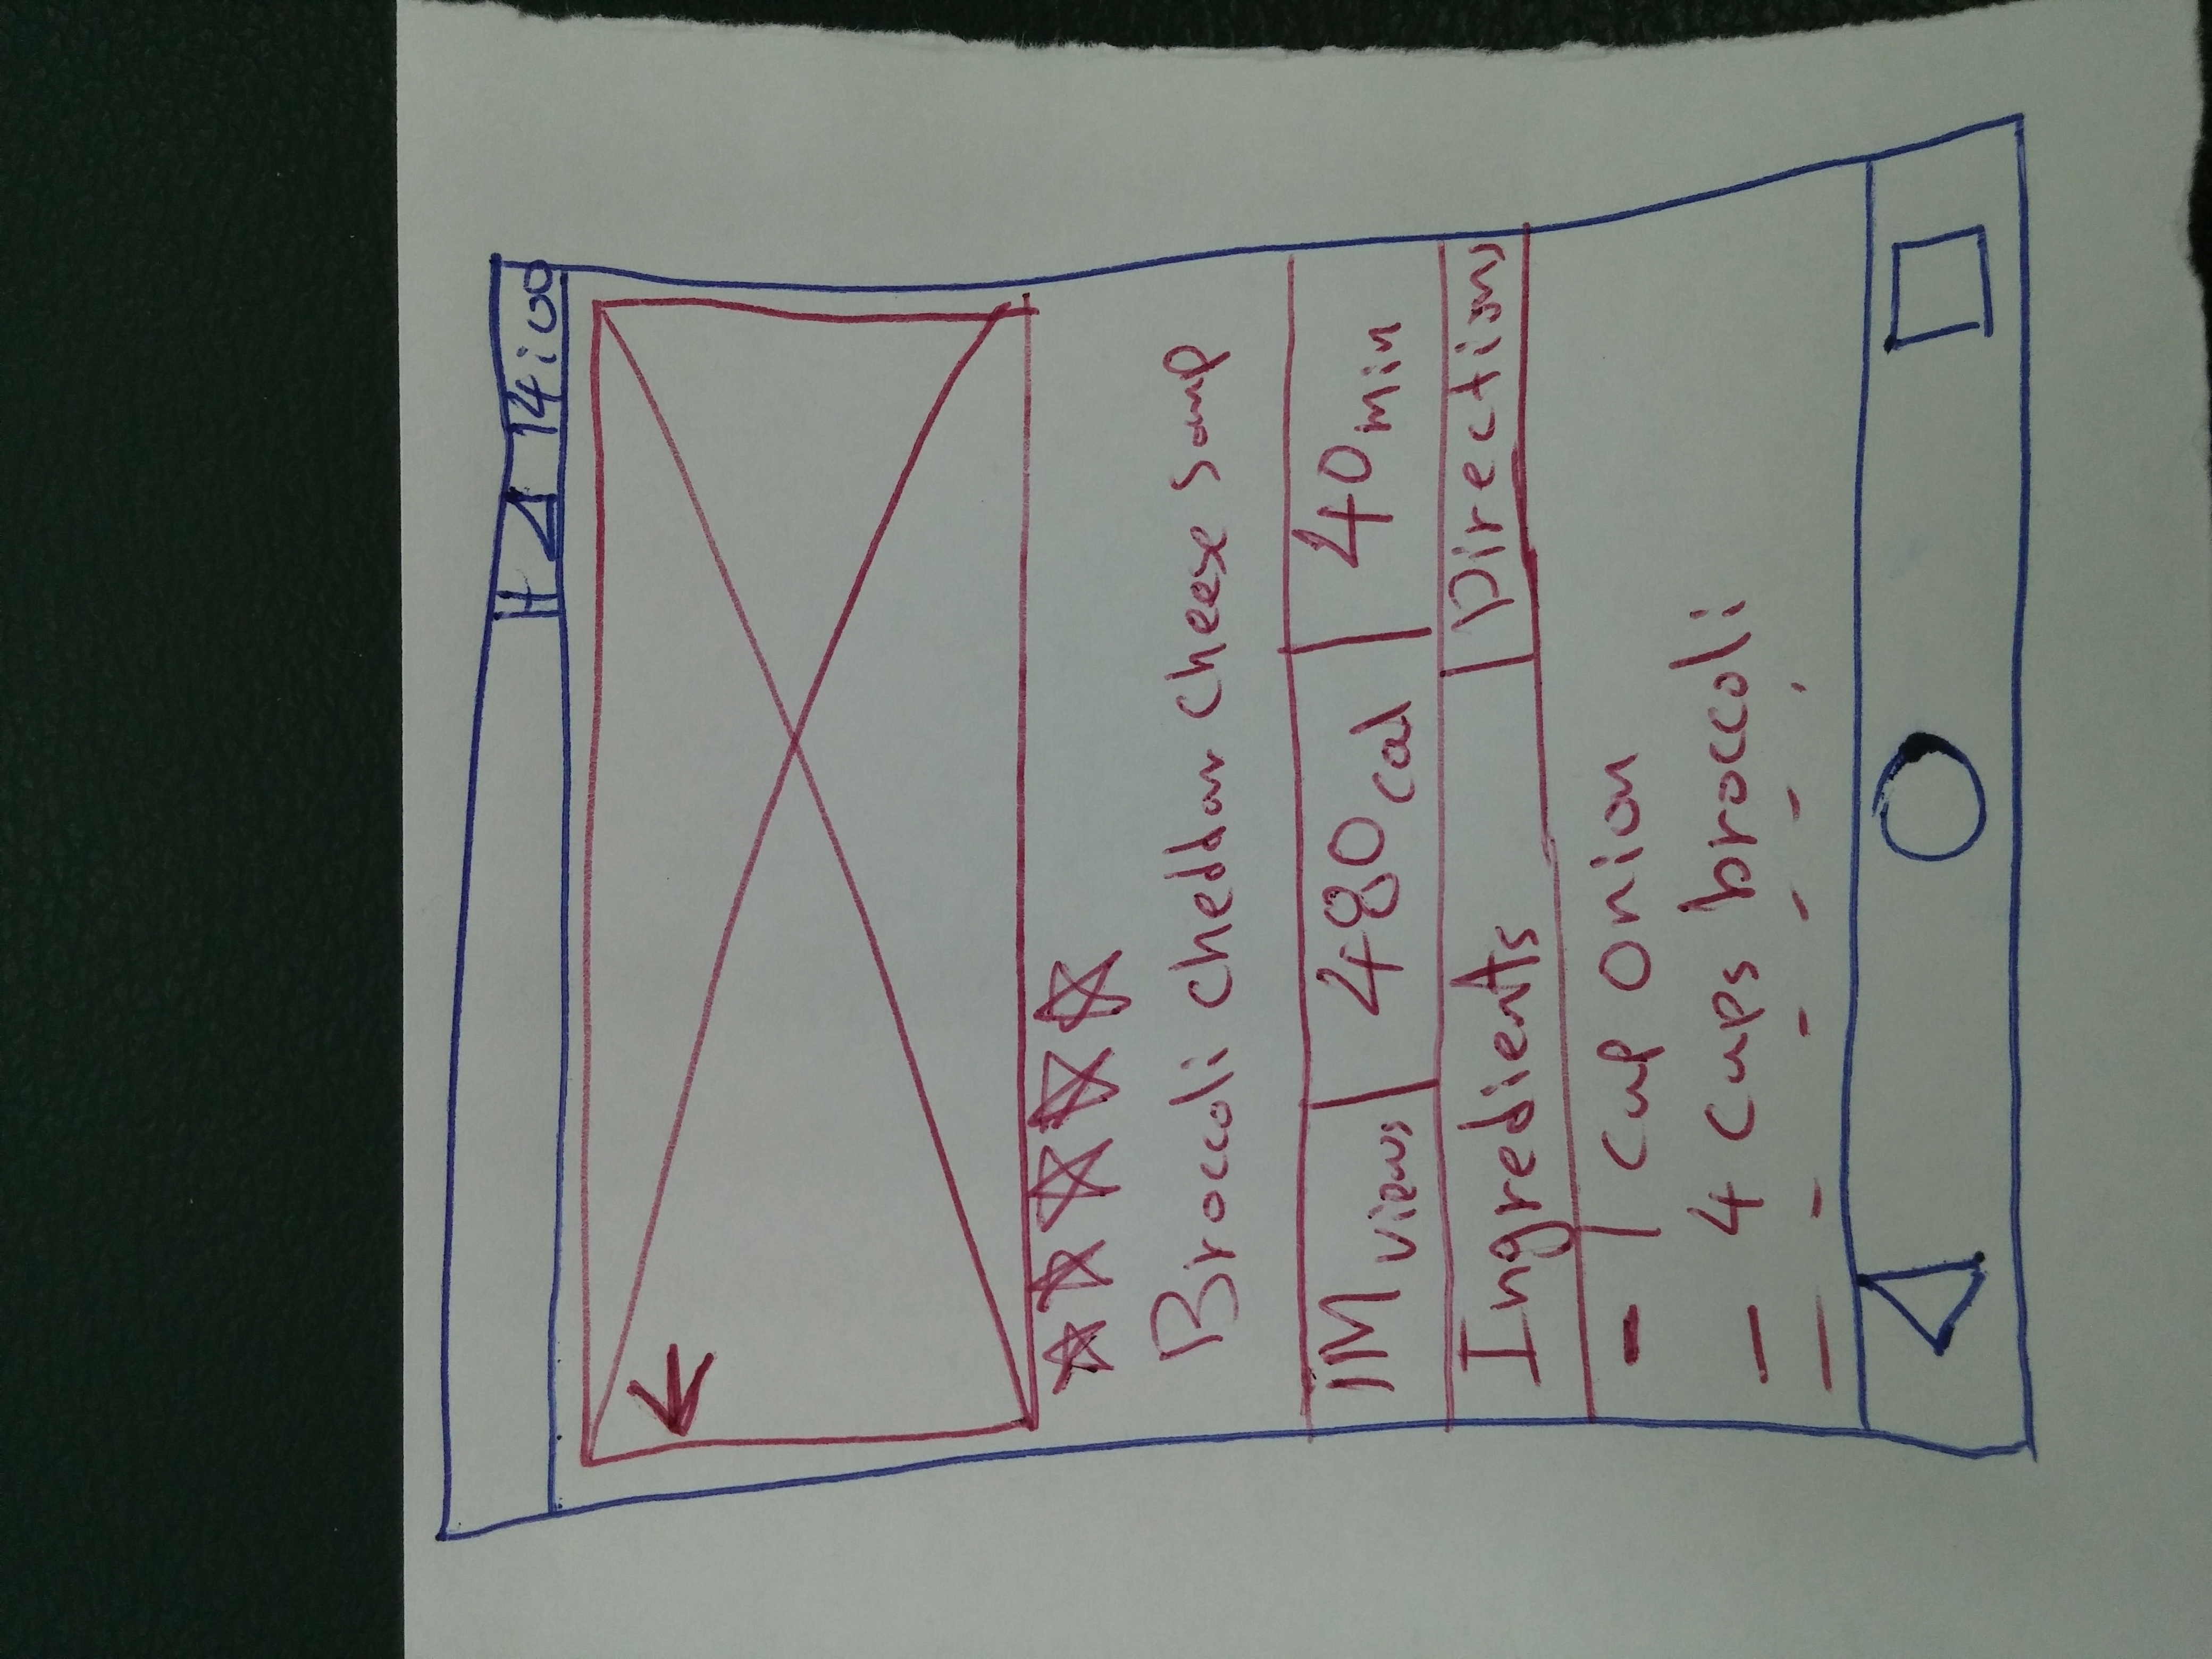 14:00
Broccoli cheddar cheese soup
1M views 480 cal 40 min
Ingredients Directions
- 1 cup onion
- 4 cups broccoli